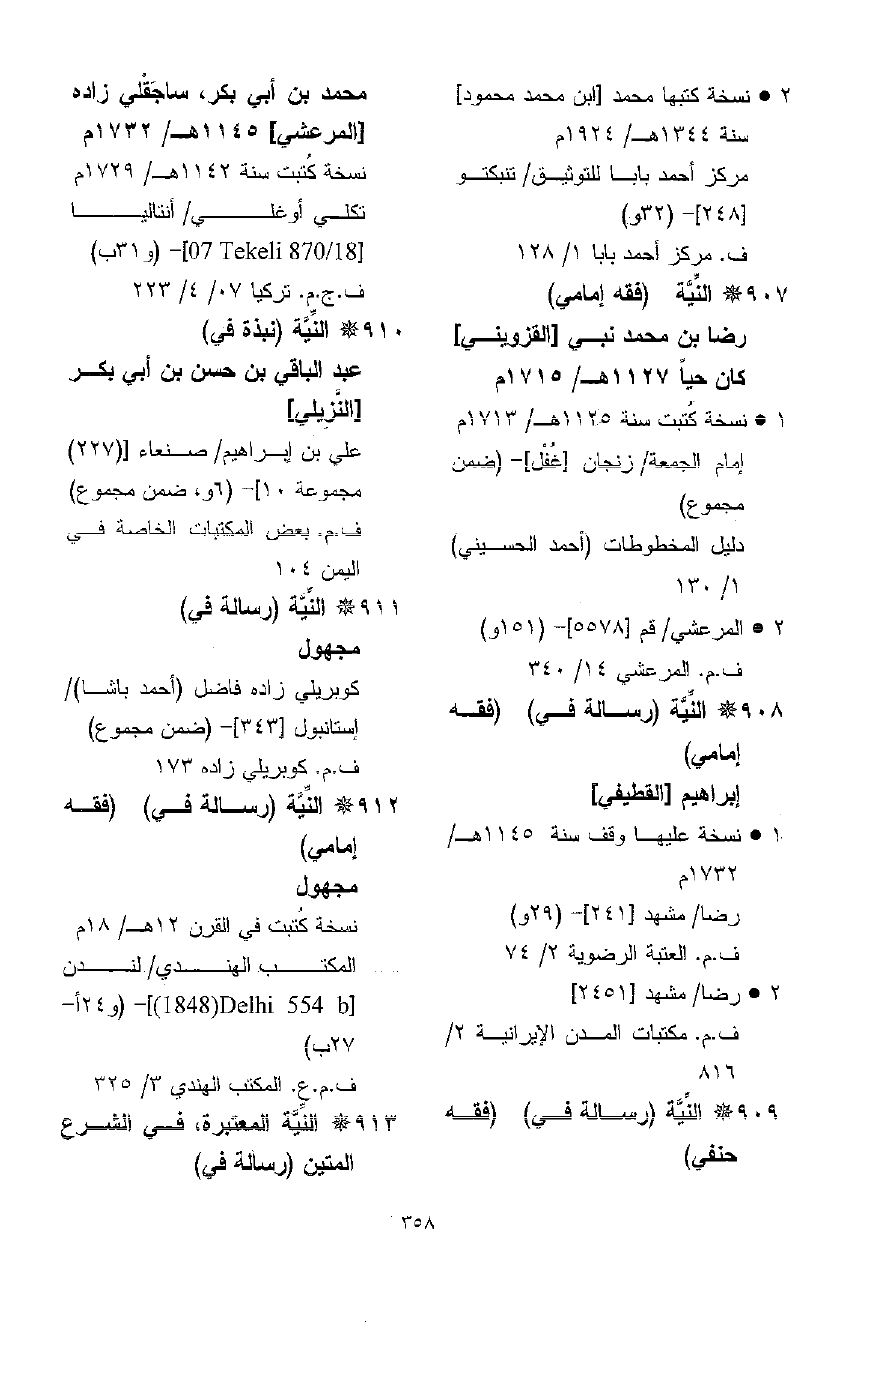 ٢ • نسخة كتبها محمد [ابن محمد محمود]
سنة ١٣٤٤هـ/ ١٩٢٤م
مركز أحمد بابا للتوثيق/ تنبكتو
[٢٤٨]- (٣٢و)
ف. مركز أحمد بابا ١/ ١٢٨
٩٠٧* النِّيَّة (فقه إمامي)
رضا بن محمد نبي [القزويني]
كان حياً ١١٢٧هـ/ ١٧١٥م
١ • نسخة كُتبت سنة ١١٢٥هـ/ ١٧١٣م
إمام الجمعة/ زنجان [غُفْل]- (ضمن
مجموع)
دليل المخطوطات (أحمد الحسيني)
١/ ١٣٠
٢ • المرعشي/ قم [٥٥٧٨]- (١٥١و)
ف.م. المرعشي ١٤/ ٣٤٠
٩٠٨* النِّيَّة (رسالة في) (فقه
إمامي)
إبراهيم [القطيفي]
١ • نسخة عليها وقف سنة ١١٤٥هـ/
١٧٣٢م
رضا/ مشهد [٢٤١]- (٢٩و)
ف.م. العتبة الرضوية ٢/ ٧٤
٢ • رضا/ مشهد [٢٤٥١]
ف.م. مكتبات المدن الإيرانية ٢/
٨١٦
٩٠٩* النِّيَّة (رسالة في) (فقه
حنفي)
محمد بن أبي بكر، ساجَقْلي زاده
[المرعشي] ١١٤٥هـ/ ١٧٣٢م
نسخة كُتبت سنة ١١٤٢هـ/ ١٧٢٩م
تكلي أوغلي/ أنتاليا
[07 Tekeli 870/18]- (و٣١ب)
ف.ج.م. تركيا ٠٧/ ٤/ ٢٢٣
٩١٠* النِّيَّة (نبذة في)
عبد الباقي بن حسن بن أبي بكر
[النَّزيلي]
علي بن إبراهيم/ صنعاء [(٢٢٧)
مجموعة ١٠]- (٦و، ضمن مجموع)
ف.م. بعض المكتبات الخاصة في
اليمن ١٠٤
٩١١* النِّيَّة (رسالة في)
مجهول
كوبريلي زاده فاضل (أحمد باشا)/
إستانبول [٣٤٣]- (ضمن مجموع)
ف.م. كوبريلي زاده ١٧٣
٩١٢* النِّيَّة (رسالة في) (فقه
إمامي)
مجهول
نسخة كُتبت في القرن ١٢هـ/ ١٨م
المكتب الهندي/ لندن
[Delhi 554 b(1848)]- (و٢٤أ-
٢٧ب)
ف.م.ع. المكتب الهندي ٣/ ٣٢٥
٩١٣* النِّيَّة المعتبرة، في الشرع
المتين (رسالة في)
٣٥٨